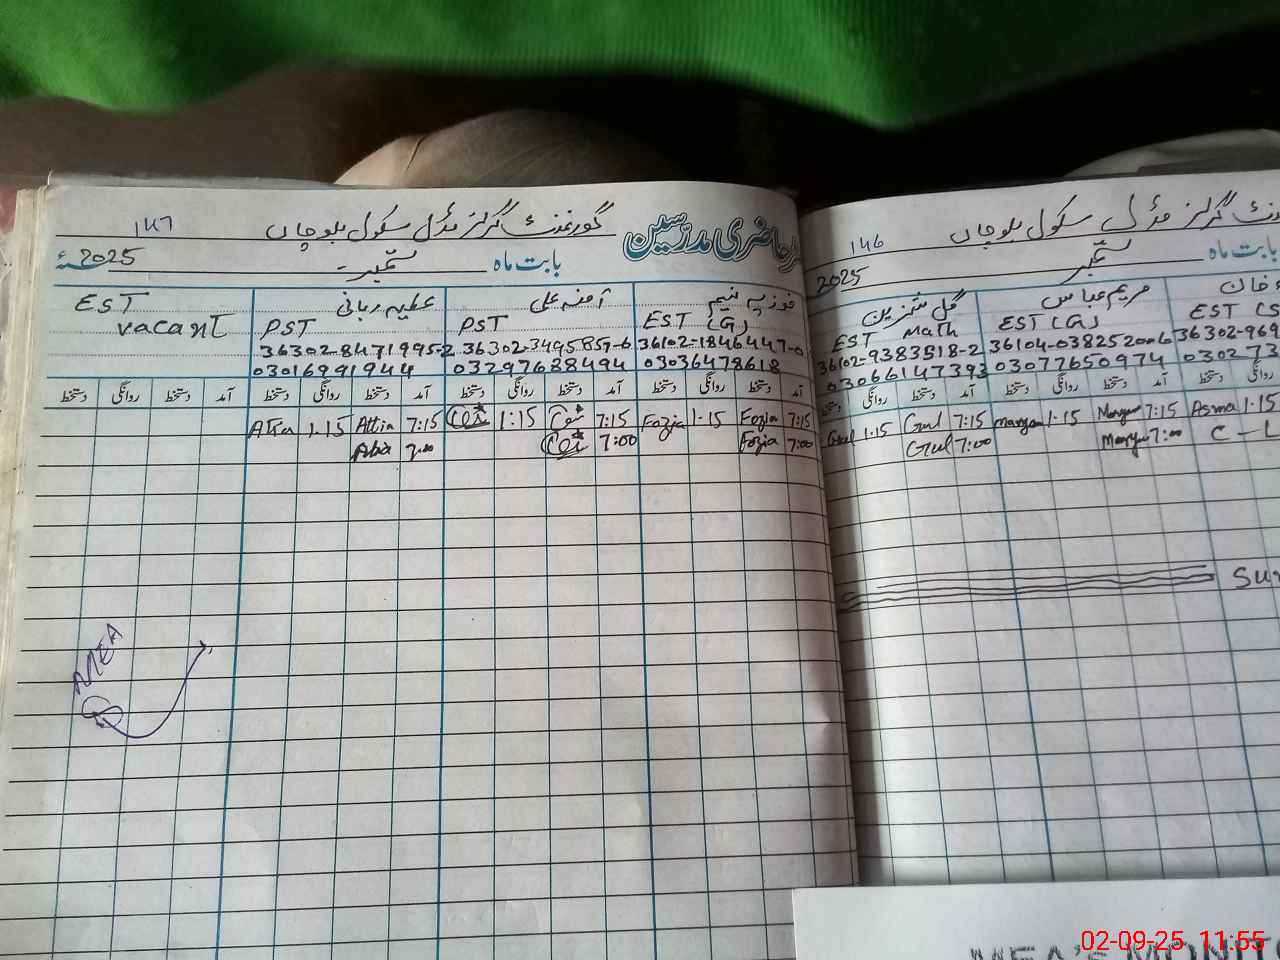 رجسٹر حاضری مدرسین
گورنمنٹ گرلز مڈل سکول بلوچاں ۱۴۷
بابت ماہ ستمبر 2025
فوزیہ نسیم
EST (G)
36102-1846447-0
03036478618
آمنہ علی
PST
36302-3495857-6
03297688494
عطیہ ربانی
PST
36302-8471995-2
03016991944
EST
vacant
آمد دستخط روانگی دستخط آمد دستخط روانگی دستخط آمد دستخط روانگی دستخط آمد دستخط روانگی دستخط
7:15 Fozia 1:15 Fozia 7:15 1:15 7:15 Attia 1:15 Attia
7:00 Fozia 7:00 7:00 Attia
MEA
گرلز مڈل سکول بلوچاں ۱۴۶
بابت ماہ ستمبر 2025
خان
EST (S
36302-969
030273
مریم عباس
EST (G)
36104-0382520006
03077650974
گل شنزین
EST Math
36102-9383518-2
03066147393
آمد دستخط روانگی دستخط آمد دستخط روانگی دستخط
1:15 Asma 7:15 Maryam 1:15 Maryam 7:15 Gul 1:15 Gul
C-L 7:00 Maryam 7:00 Gul
MEA's MONITO
02-09-25 11:55